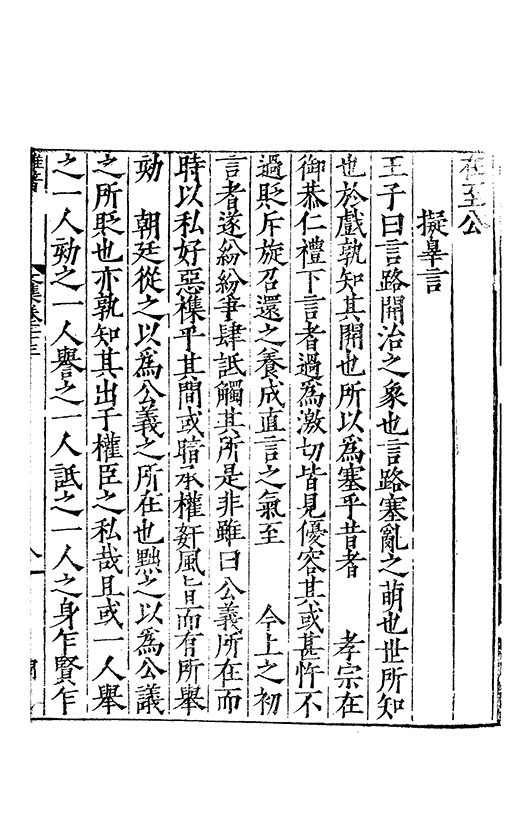 在至公
擬辠言
王子曰言路開治之象也言路塞亂之萌也世所知
也於戲孰知其開也所以爲塞乎昔者　孝宗在
御恭仁禮下言者過爲激切皆見優容其或甚忤不
過貶斥旋召還之養成直言之氣至　今上之初
言者遂紛紛爭肆詆觸其所是非雖曰公義所在而
時以私好惡襍乎其間或暗承權奸風旨而有所舉
劾　朝廷從之以爲公義之所在也黜之以爲公議
之所貶也亦孰知其出于權臣之私哉且或一人舉
之一人劾之一人譽之一人詆之一人之身乍賢乍
雜著
文集卷三十三